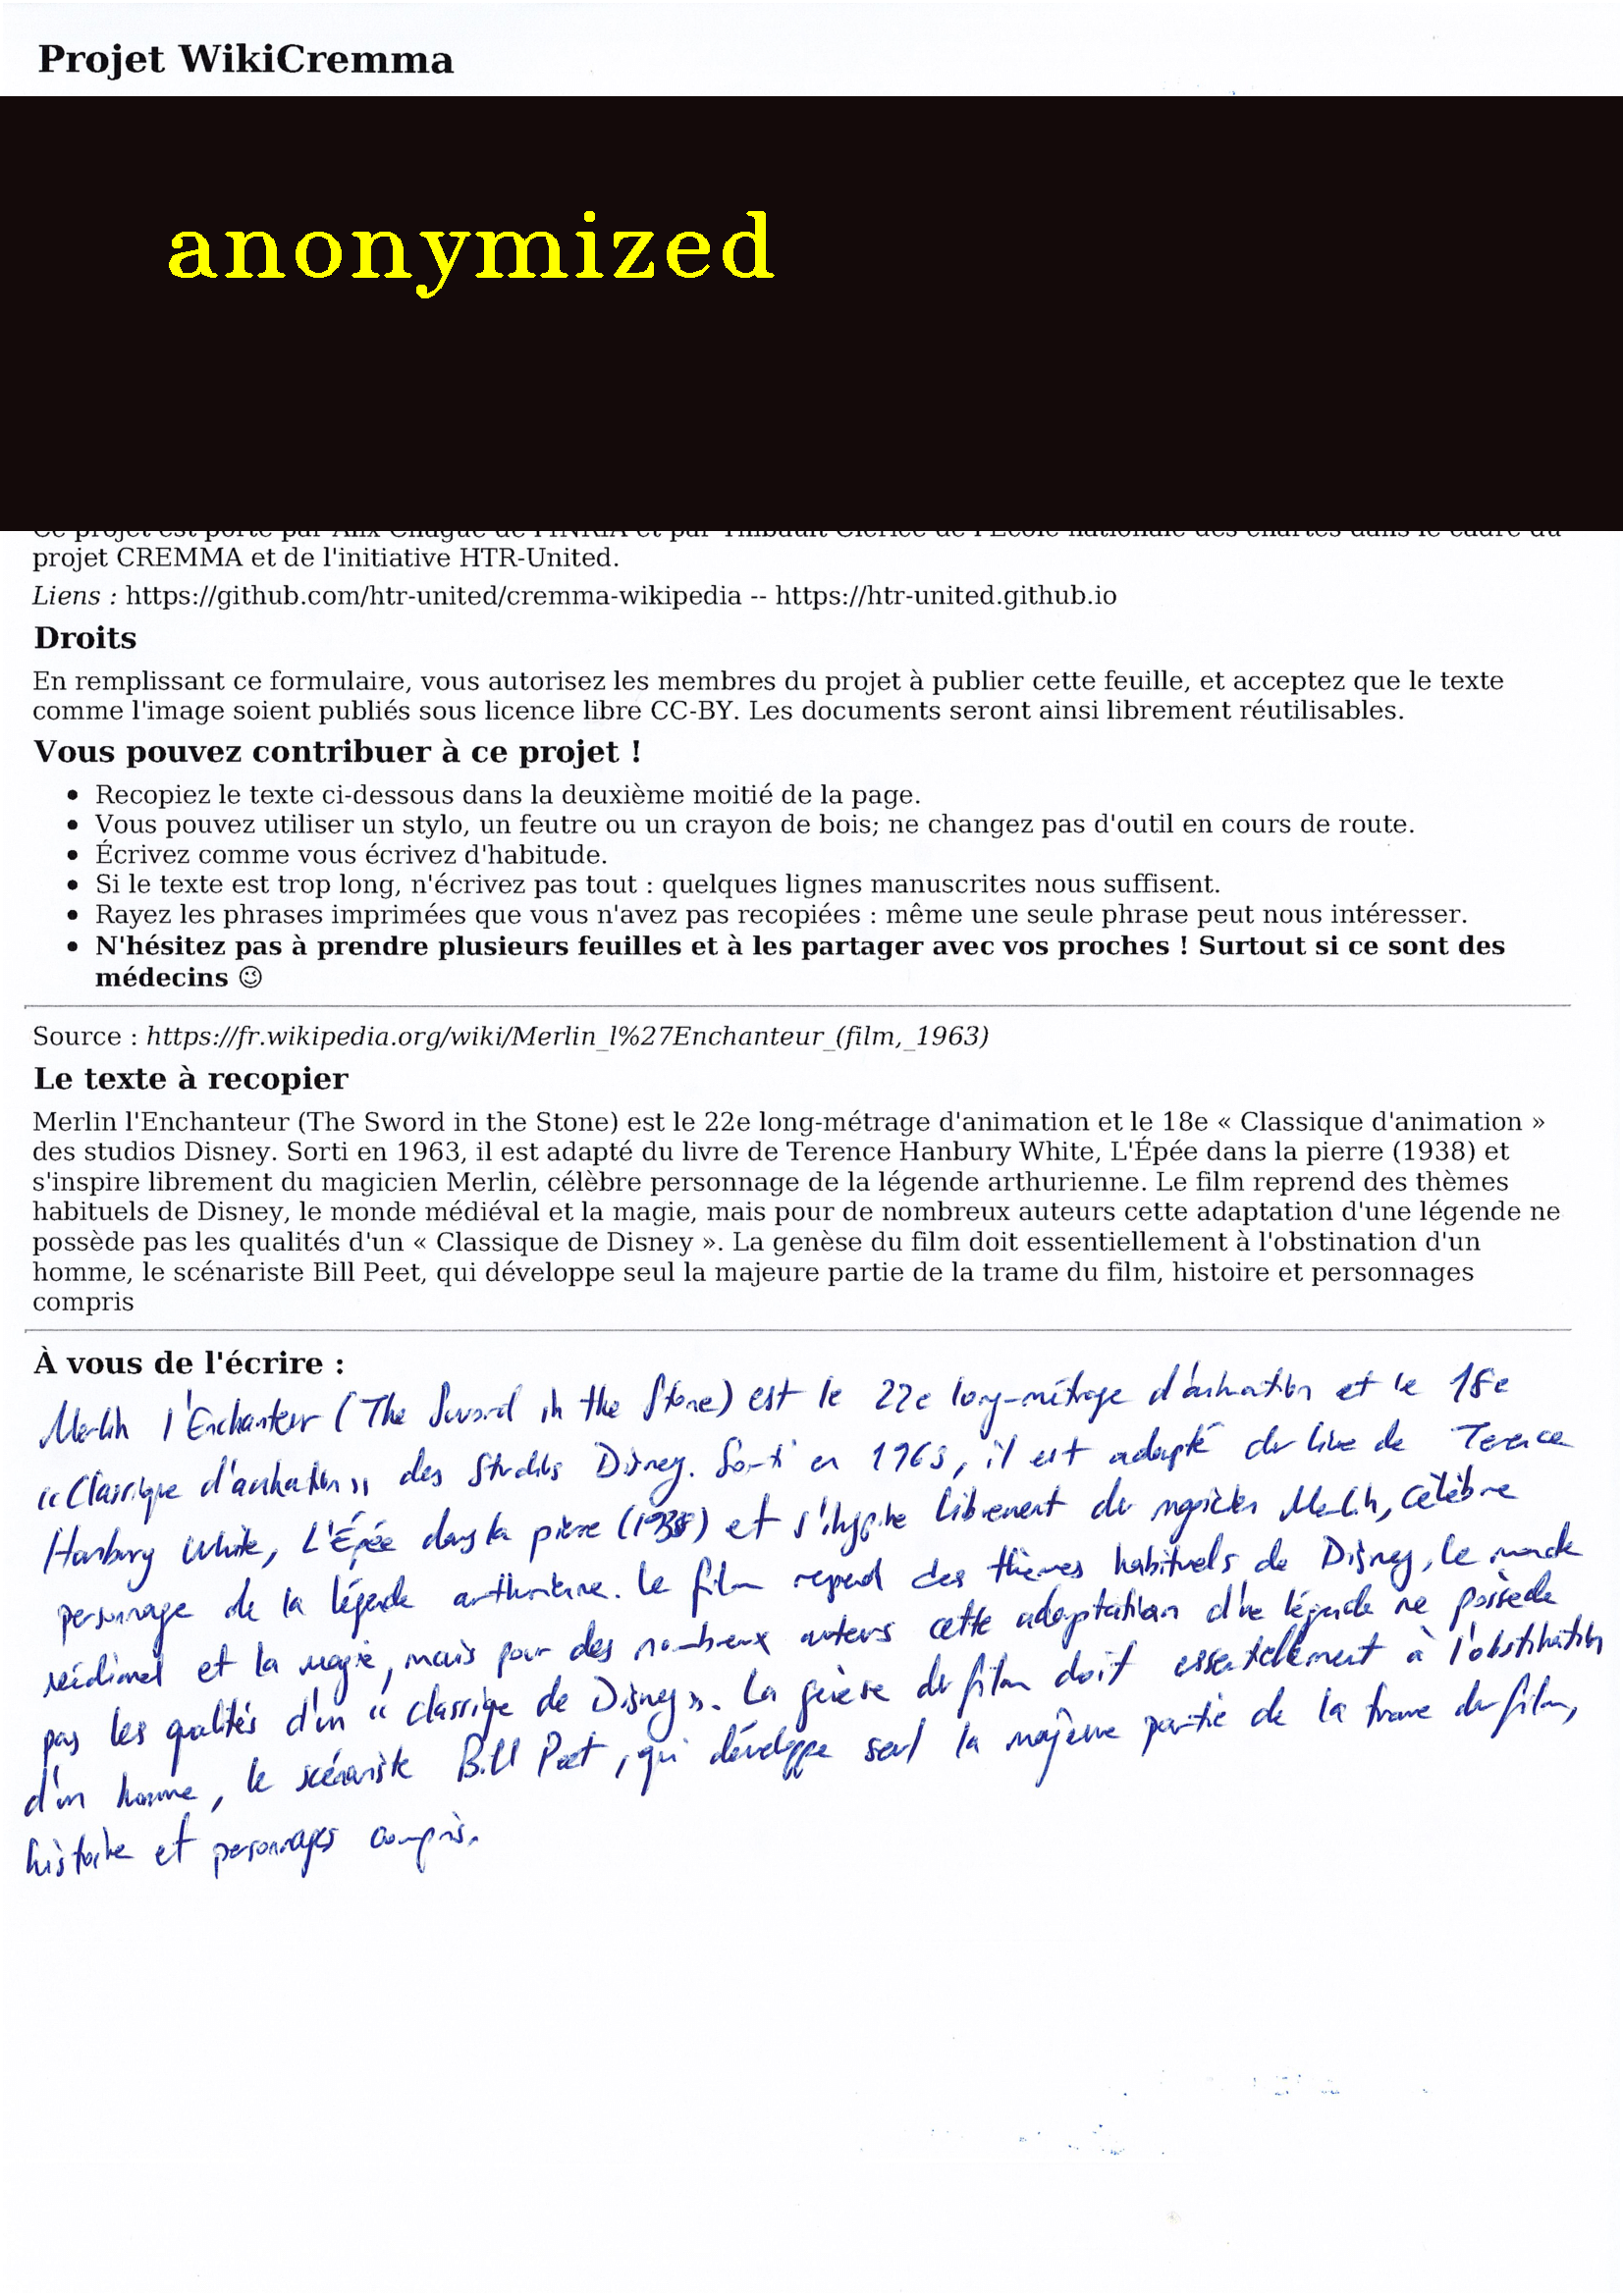 Projet WikiCremma
anonymized
Ce projet est porté par Alix Chagué de l'INRIA et par Thibault Clérice de l'École nationale des chartes dans le cadre du
projet CREMMA et de l'initiative HTR-United.
Liens : https://github.com/htr-united/cremma-wikipedia -- https://htr-united.github.io
Droits
En remplissant ce formulaire, vous autorisez les membres du projet à publier cette feuille, et acceptez que le texte
comme l'image soient publiés sous licence libre CC-BY. Les documents seront ainsi librement réutilisables.
Vous pouvez contribuer à ce projet !
• Recopiez le texte ci-dessous dans la deuxième moitié de la page.
• Vous pouvez utiliser un stylo, un feutre ou un crayon de bois; ne changez pas d'outil en cours de route.
• Écrivez comme vous écrivez d'habitude.
• Si le texte est trop long, n'écrivez pas tout : quelques lignes manuscrites nous suffisent.
• Rayez les phrases imprimées que vous n'avez pas recopiées : même une seule phrase peut nous intéresser.
• N'hésitez pas à prendre plusieurs feuilles et à les partager avec vos proches ! Surtout si ce sont des
médecins 😉
Source : https://fr.wikipedia.org/wiki/Merlin_l%27Enchanteur_(film,_1963)
Le texte à recopier
Merlin l'Enchanteur (The Sword in the Stone) est le 22e long-métrage d'animation et le 18e « Classique d'animation »
des studios Disney. Sorti en 1963, il est adapté du livre de Terence Hanbury White, L'Épée dans la pierre (1938) et
s'inspire librement du magicien Merlin, célèbre personnage de la légende arthurienne. Le film reprend des thèmes
habituels de Disney, le monde médiéval et la magie, mais pour de nombreux auteurs cette adaptation d'une légende ne
possède pas les qualités d'un « Classique de Disney ». La genèse du film doit essentiellement à l'obstination d'un
homme, le scénariste Bill Peet, qui développe seul la majeure partie de la trame du film, histoire et personnages
compris
À vous de l'écrire :
Merlin l'Enchanteur (The Sword in the Stone) est le 22e long-métrage d'animation et le 18e
« Classique d'animation » des Studios Disney. Sorti en 1963, il est adapté du livre de Terence
Hanbury White, L'Épée dans la pierre (1938) et s'inspire librement du magicien Merlin, célèbre
personnage de la légende arthurienne. Le film reprend des thèmes habituels de Disney, le monde
médiéval et la magie, mais pour des nombreux auteurs cette adaptation d'une légende ne possède
pas les qualités d'un « Classique de Disney ». La genèse du film doit essentiellement à l'obstination
d'un homme, le scénariste Bill Peet, qui développe seul la majeure partie de la trame du film,
histoire et personnages compris.